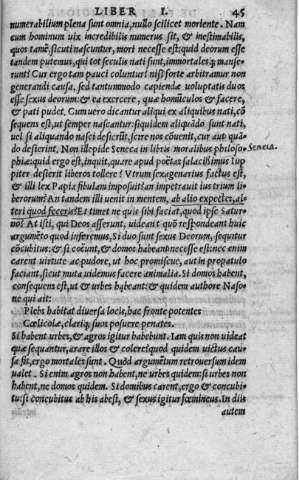 LIBER I. 45
numerabilium plena sunt omnia, nullo scilicet moriente. Nam
cum hominum uix incredibilis numerus sit, & inestimabilis,
quos tamē, sicuti nascuntur, mori necesse est: quid deorum esse
tandem putemus, qui tot seculis nati sunt, immortalesq; manse-
runt? Cur ergo tam pauci coluntur? nisi forte arbitramur non
generandi causa, sed tantummodo capiendæ uoluptatis duos
esse sexus deorum: & ea exercere, quæ homūculos & facere,
& pati pudet. Cum uero dicantur aliqui ex aliquibus nati, cō
sequens est, ut semper nascantur: siquidem aliquādo sunt nati,
uel si aliquando nasci desierūt, scire nos cōuenit, cur aut quā-
do desierint. Non illepide Seneca in libris moralibus philoso-
phiæ: quid ergo est, inquit, quare apud poëtas salacissimus Iup
piter desierit liberos tollere? Vtrum sexagenarius factus est,
& illi lex Papia fibulam imposuit? an impetrauit ius trium li-
berorum? An tandem illi uenit in mentem, ab alio expectes, al-
teri quod feceris? Et timet ne quis sibi faciat, quod ipse Satur-
no? At isti, qui Deos asserunt, uideant quō respondeant huic
argumēto quod inferemus. Si duo sunt sexus Deorum, sequitur
cōcubitus: & si coëunt, & domos habeant necesse est: nec enim
carent uirtute ac pudore, ut hoc promiscue, aut in propatulo
faciant, sicut muta uidemus facere animalia. Si domos habent,
consequens est, ut & urbes habeant: & quidem authore Naso-
ne qui ait:
Plebs habitat diuersa locis, hac fronte potentes
Cœlicolæ, clariq; suos posuere penates.
Si habent urbes, & agros igitur habebunt. Iam quis non uideat
quæ sequantur, arare illos & colere? quod quidem uictus cau-
sa fit, ergo mortales sunt. Quod argumētum retrouersum idem
ualet. Si enim agros non habent, ne urbes quidem: si urbes non
habent, ne domos quidem. Si domibus carent, ergo & concubi-
tu: si concubitus ab his abest, & sexus igitur fœmineus. In diis
autem
Seneca.